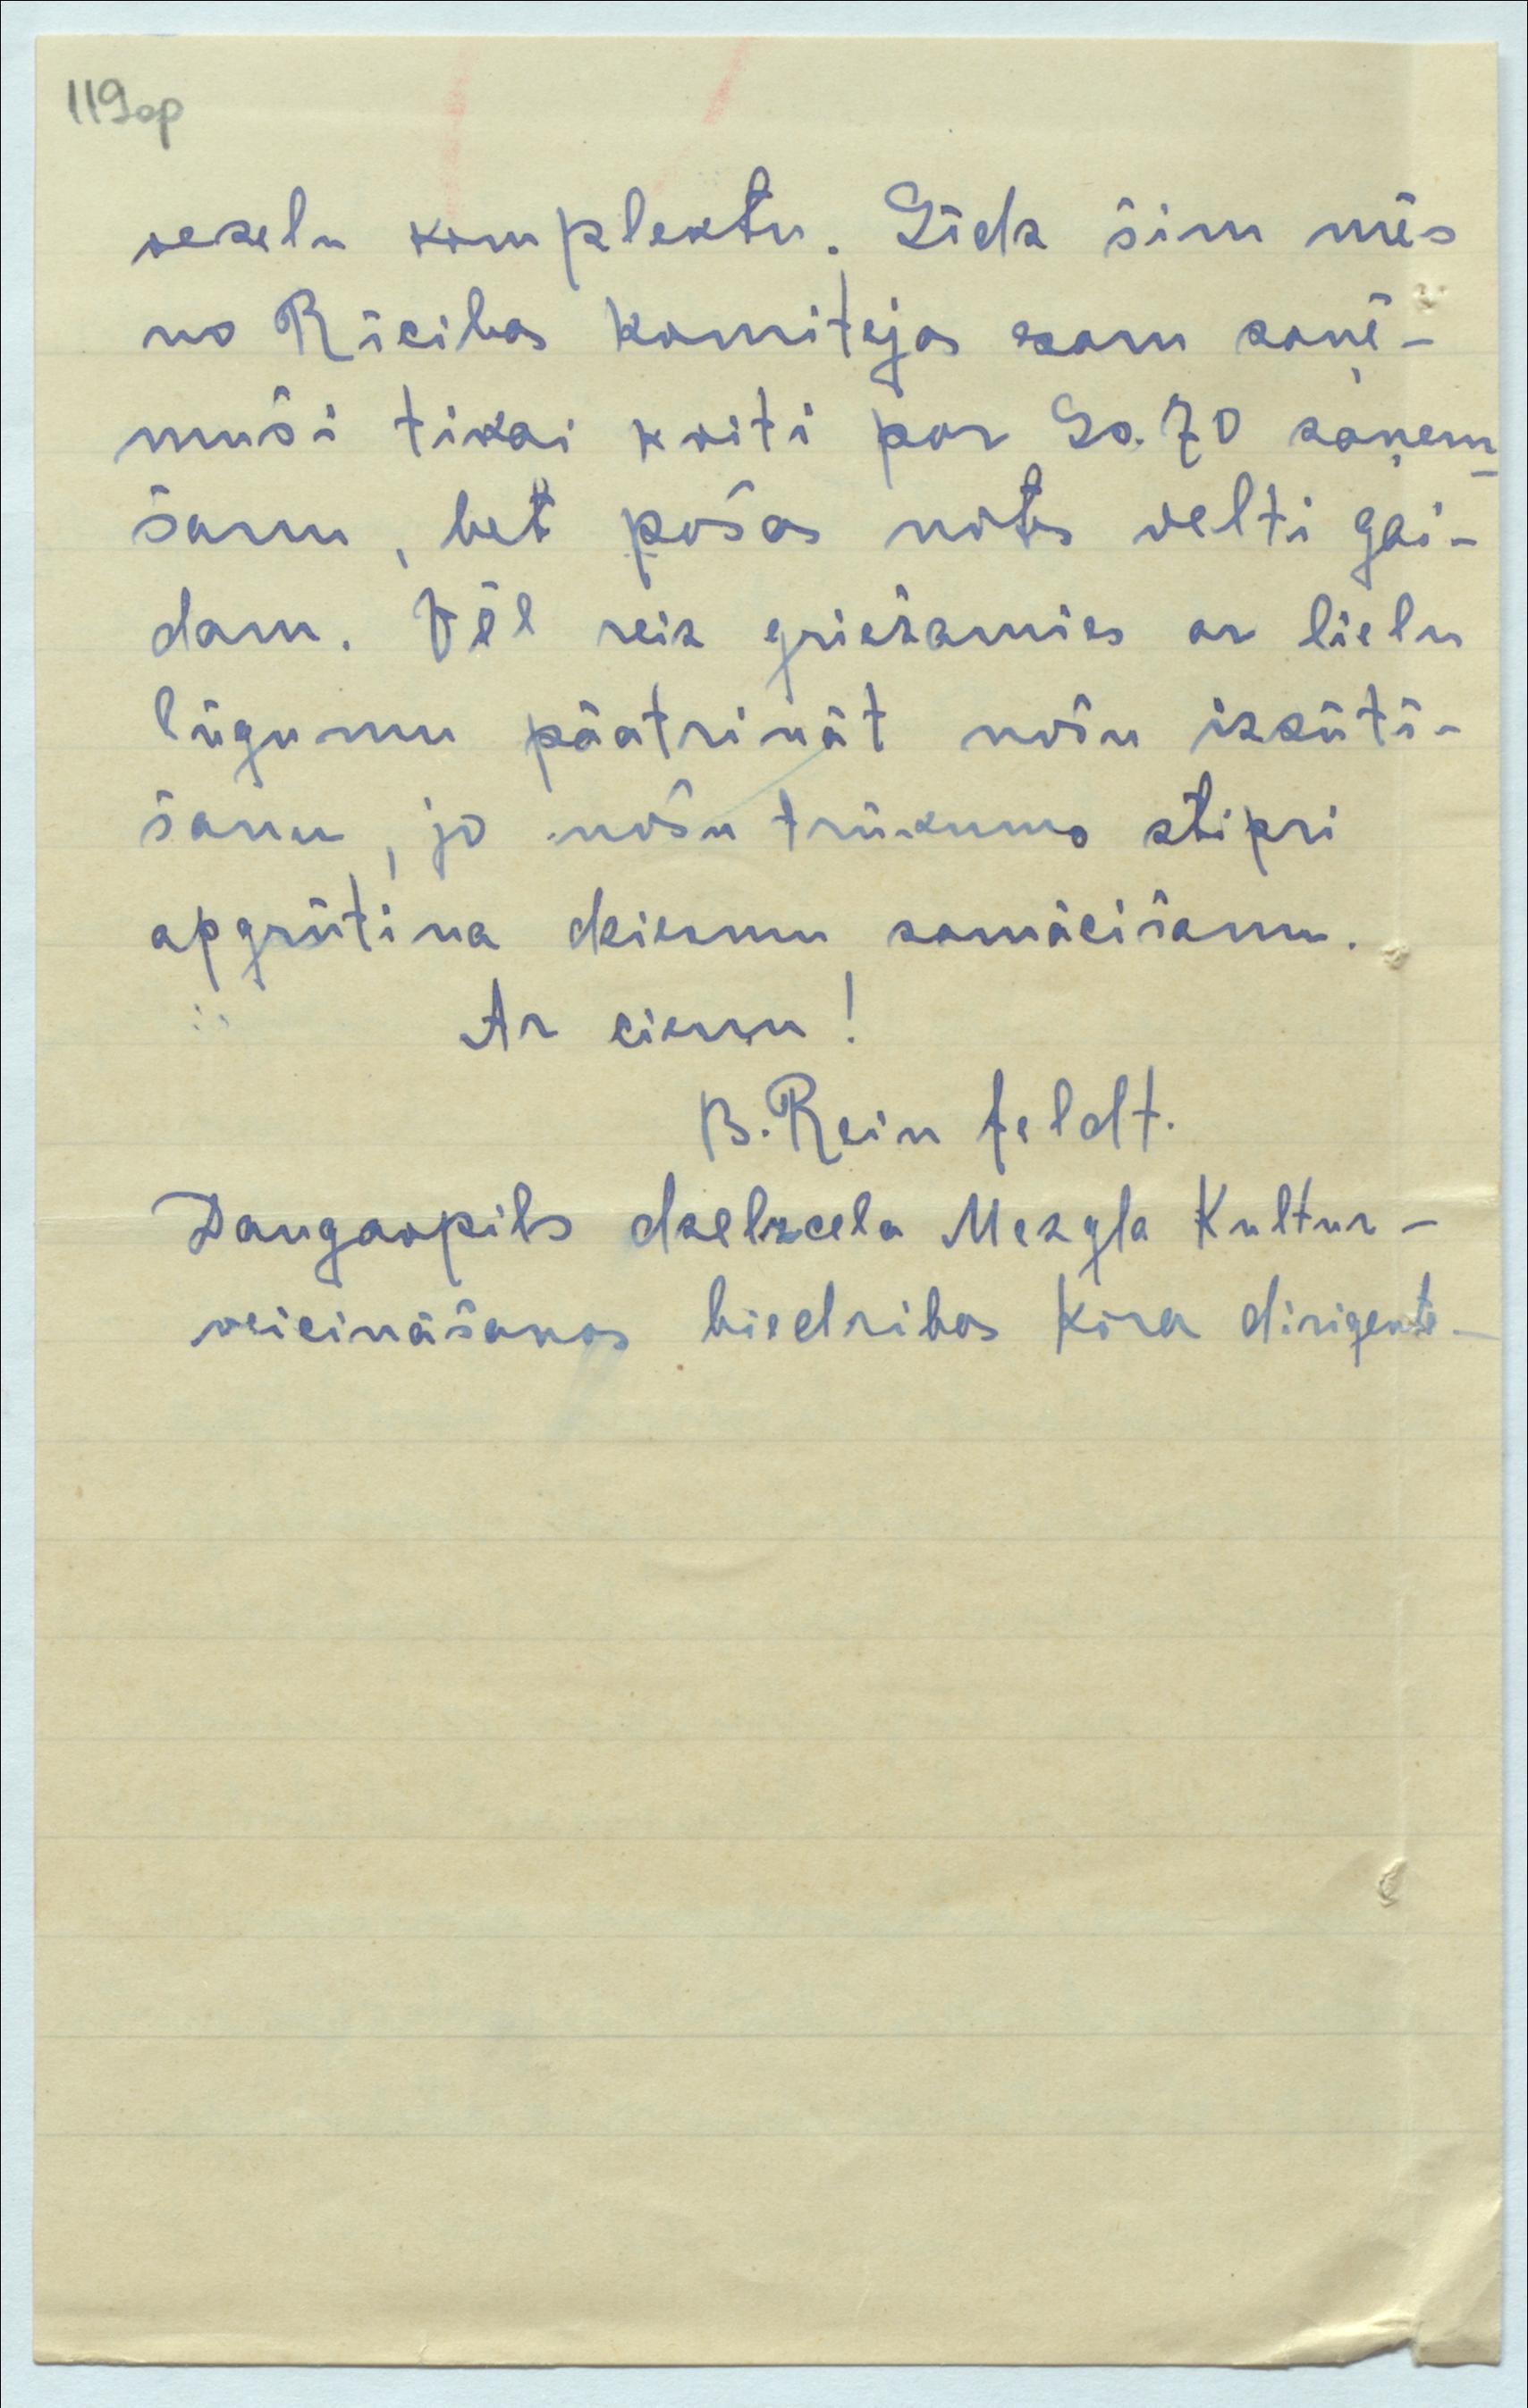 119op
veselu komplektu. Līdz šim mēs
no Rīcības Komitejas esam saņē-
muši tikai kviti par Ls. 70 saņem-
šanu, bet pošas notis velti gai-
dam. Vēl reiz griežamies ar lielu
lūgumu pāatrināt nošu izsūtī-
šanu, jo nošu trūkums stipri
apgrūtina dziesmu samācīšanu.
Ar cieņu!
B. Reinfeldt.
Daugavpils dzelzceļa Mezgla Kultur-
veicināšanas biedrības Kora dirigente-